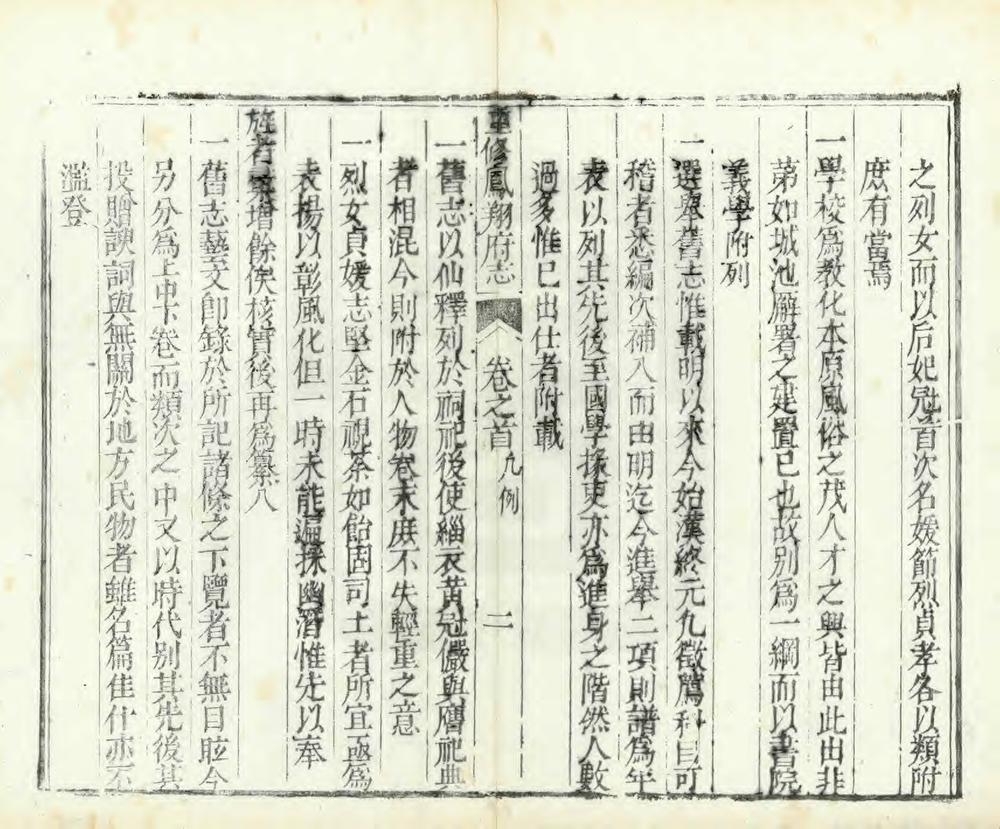 之列女而以后妃冠首次名媛節烈貞孝各以類附
庶有當焉
一學校爲教化本原風俗之茂人才之興皆由此出非
第如城池廨署之建置已也故别爲一綱而以書院
義學附列
一選舉舊志惟載明以來今始漢終元凡徵薦科目可
稽者悉編次補入而由明迄今進舉二項則譜爲年
表以列其先後至國學掾吏亦爲進身之階然人數
過多惟已出仕者附載
重修鳳翔府志 卷之首 凡例 二
一舊志以仙釋列於祠祀後使緇衣黃冠儼與膺祀典
者相混今則附於人物卷末庶不失輕重之意
一烈女貞媛志堅金石視荼如飴固司土者所宜亟爲
表揚以彰風化但一時未能遍採幽潛惟先以奉
旌者彙增餘俟核實後再爲纂入
一舊志藝文卽錄於所記諸條之下覽者不無目眩今
另分爲上中下卷而類次之中又以時代别其先後其
投贈諛詞與無關於地方民物者雖名篇佳什亦不
濫登